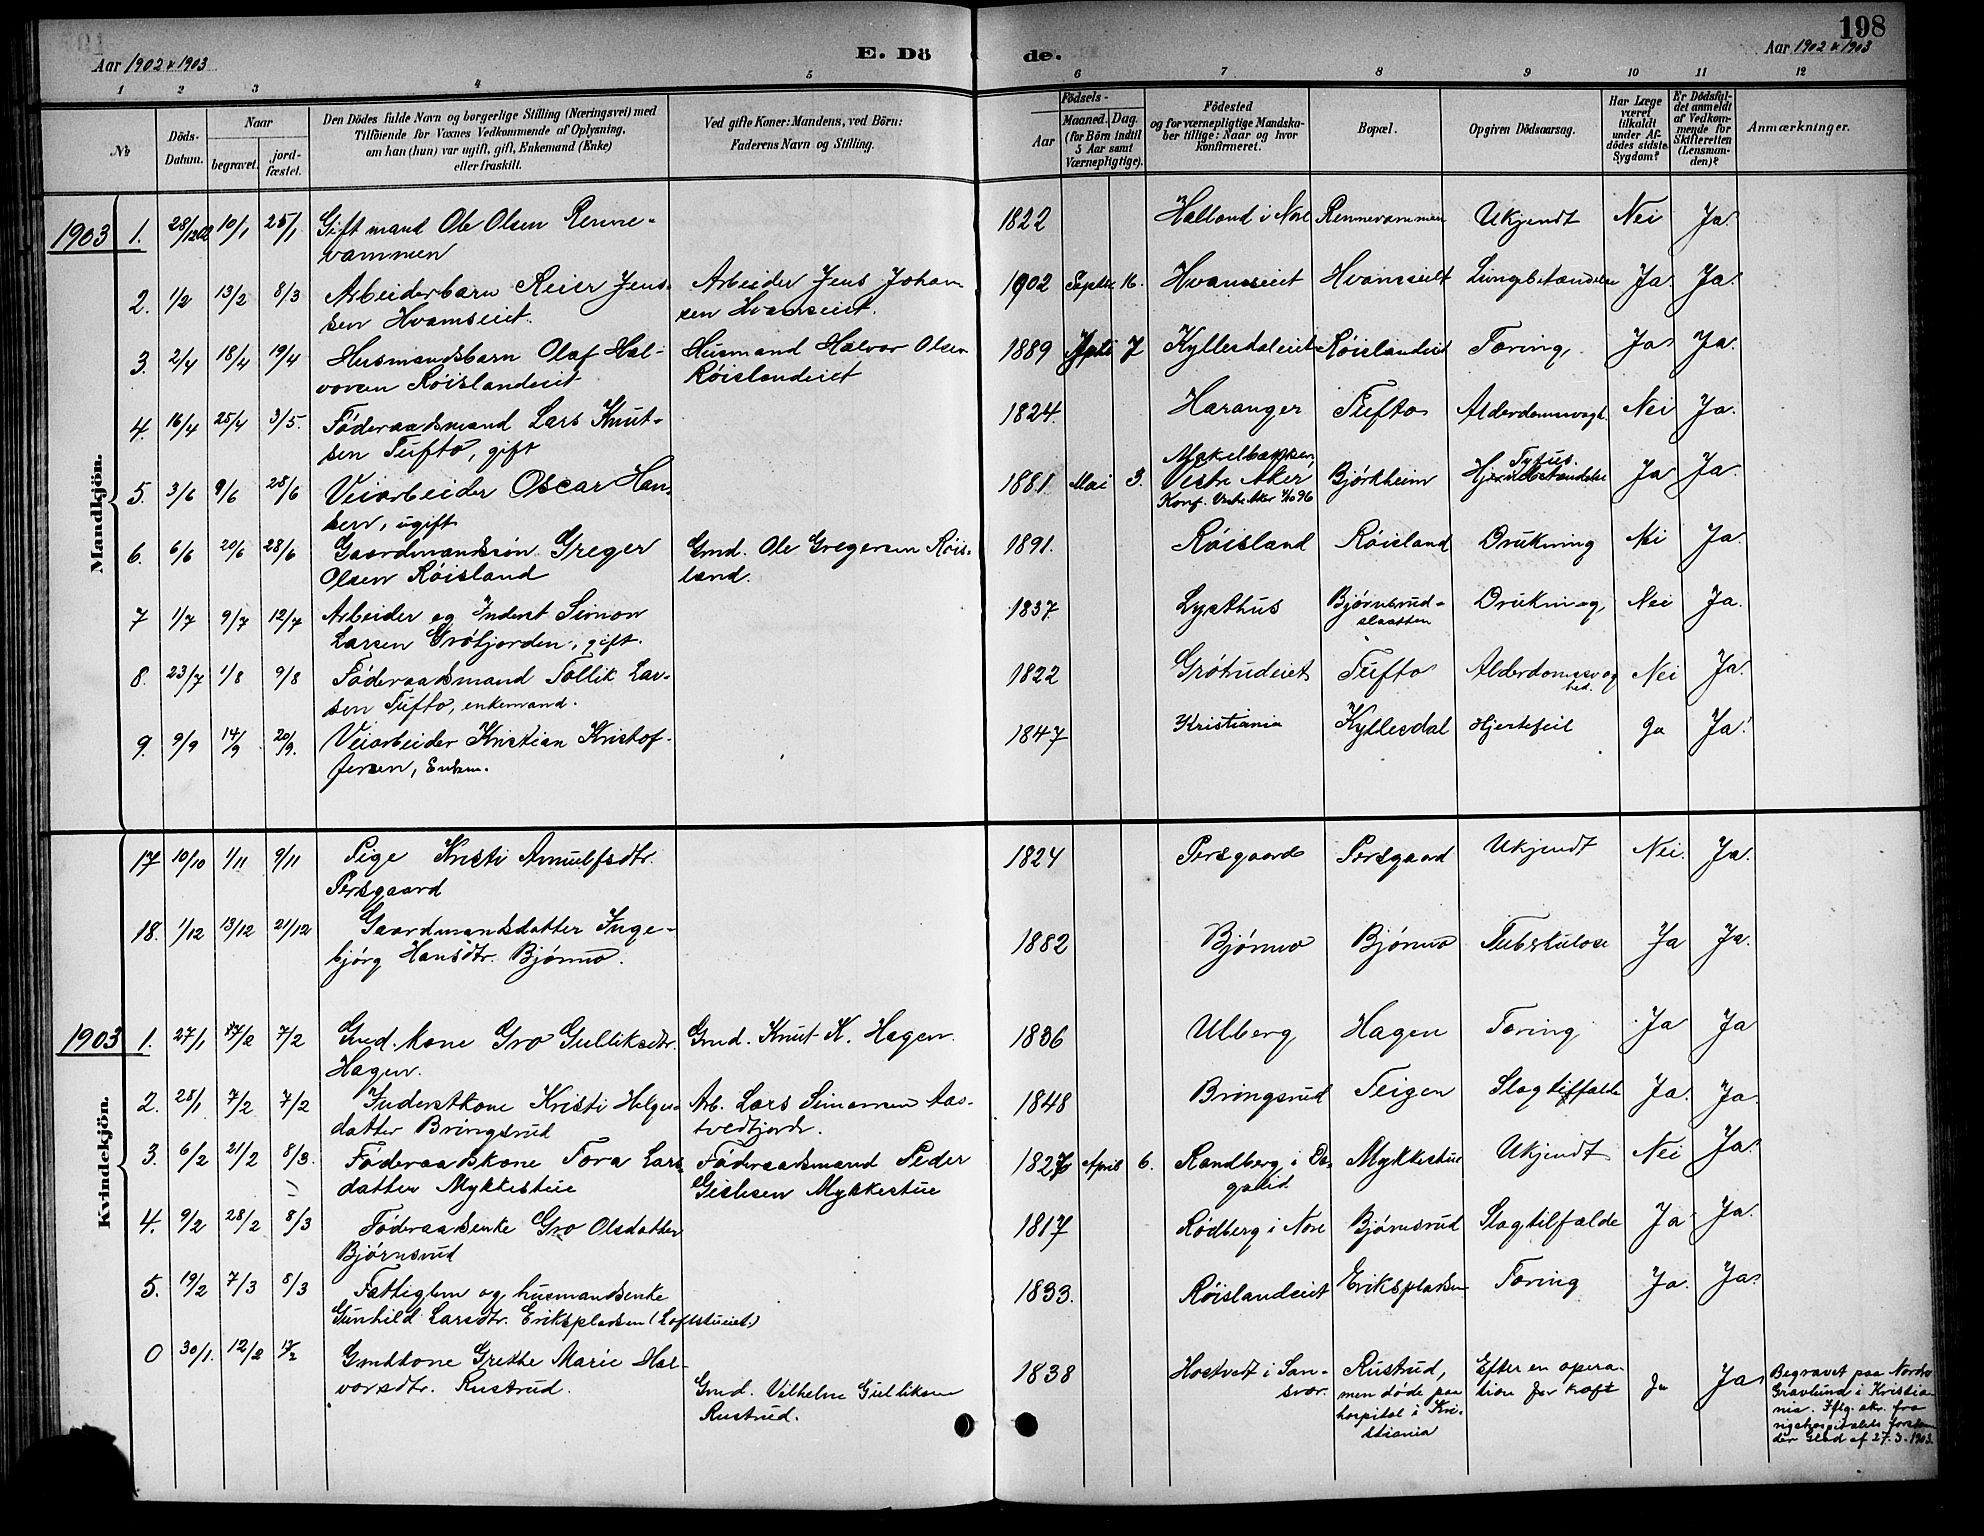 198
Aar 1902 & 1903
E. Dö
de.
Aar 1902 & 1903
1 2 3 4 5 6 7 8 9 10 11 12
No
Döds-
Datum.
Naar
begravet.
jord-
fæstet.
Den Dödes fulde Navn og borgerlige Stilling (Næringsvei) med
Tilföiende for Voxnes Vedkommende af Oplysning,
om han (hun) var ugift, gift, Enkemand (Enke)
eller fraskilt.
Ved gifte Koner: Mandens, ved Börn:
Faderens Navn og Stilling.
Födsels-
Aar
Maaned. Dag.
(for Börn indtil
5 Aar samt
Værnepligtige).
Födested
og for værnepligtige Mandska-
ber tillige: Naar og hvor
konfirmeret.
Bopæl.
Opgiven Dödsaarsag.
Har Læge
været
tilkaldt
under Af-
dödes sidste
Sygdom?
Er Dödsfal-
det anmeldt
af Vedkom-
mende for
Skifteretten
(Lensman-
den)?
Anmærkninger.
Mandkjön.
1903 1. 28/12 02 10/1 25/1 Gift mand Ole Olsen Renne-
vammen
1822 Halland i Nore Rennevammen Ukjendt Nei Ja.
2. 1/2 13/2 8/3 Arbeiderbarn Reier Jens-
sen Hvamseiet.
Arbeider Jens Johan-
sen Hvamseiet.
1902 Septbr. 16. Hvamseiet Hvamseiet Lungebetændelse Ja. Ja.
3. 2/4 18/4 19/4 Husmandsbarn Olaf Hal-
vorsen Röislandeiet
Husmand Halvor Olsen
Röislandeiet
1889 7 Kyllesdaleiet Röislandeiet Tæring, Ja. Ja.
4. 16/4 25/4 3/5. Föderaadsmand Lars Knut-
sen Tufto, gift
1824. Haranger Tufto Nei Ja.
5. 3/6 9/6 28/6 Veiarbeider Oscar Han-
sen, ugift
1881 Mai 3. Makelbakken,
Vestre Aker
Konf. Vestre Aker 96
Bjørkheim Tyfus. Ja Ja.
6. 6/6 20/6 28/6 Gaardmandssøn Greger
Olsen Röisland
Gmd. Ole Gregersen Röis-
land.
1891. Röisland Röisland Drukning Nei Ja.
7 1/7 9/7 12/7 Arbeider og Inderst Simon
Larsen Gröfjorden, gift.
1837 Lysthus Bjørnsrud-
slaatten
Drukning, Nei Ja.
8. 23/7 1/8 9/8 Föderaadsmand Tollik Lar-
sen Tufto, enkemand.
1822 Gröterudeiet Tufto Alderdomssvag-
hed.
Nei Ja.
9. 9/9 14/9 20/9. Veiarbeider Kristian Kristof-
fersen, Enkem.
1847 Kristiania Kyllesdal Hjertefeil Ja Ja.
Kvindekjön.
17 10/10 1/11 9/11 Pige Kristi Arnulfsdtr.
Persgaard
1824 Persgaard Persgaard Ukjendt Nei. Ja.
18. 1/12 13/12 21/12 Gaardmandsdatter Inge-
bjørg Hansdtr. Bjørnmo.
1882 Bjørnmo Bjørnmo Tuberkulose Ja Ja.
1903 1. 27/1 7/2 7/2 Gmd. kone Gro Gulliksdtr.
Hagen.
Gmd. Knut K. Hagen.
1836 Ulberg Hagen Tæring Ja Ja
2. 28/1 7/2 7/2 Inderstkone Kristi Helges-
datter Bringsrud
Arb. Lars Simonsen Aas-
tvedfjordr.
1848 Bringsrud Teigen Slagtilfælde Ja. Ja.
3. 6/2 21/2 8/3. Föderaadskone Tora Lars
datter Mykkestue
Föderaadsmand Peder
Gislesen Mykkestue
1827 April 6. Randberg i Op-
galid.
Mykkestue Ukjendt Nei Ja.
4. 9/2 28/2 8/3 Föderaadsenke Gro Olsdatter
Bjørnsrud
1817 Rödberg i Nore Bjørnsrud Slagtilfælde Ja Ja.
5. 19/2 7/3 8/3 Fattiglem og husmandsenke
Gunhild Larsdtr. Erikspladsen (Loftstueiet)
1833. Röislandeiet Erikspladsen Tæring Ja. Ja.
0 30/1. 12/2 Gmdkone Grethe Marie Hal-
vorsdtr. Rustrud.
Gmd. Vilhelm Gulliksen
Rustrud.
1838 Hostvedt i San-
svær.
Rustrud,
men døde paa
hospital i Kri-
stiania
Efter en opera-
tion for kræft
Ja Ja
Begravet paa Nordre
Gravlund i Kristia-
nia. Iflg. skr. fra
rigshospitalets forstan-
der Glad af 27.3.1903.